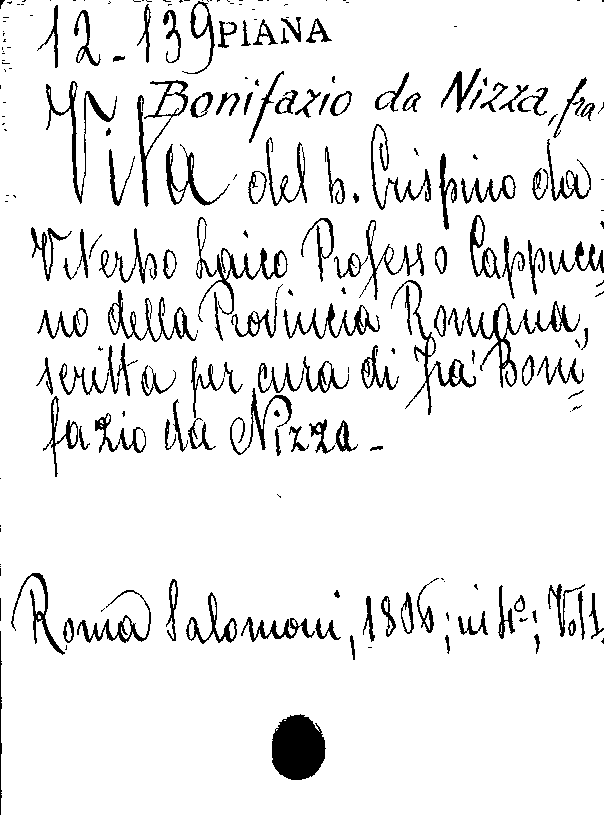 12-139 PIANA
Bonifazio da Nizza, fra'
Vita del b. Crispino da
Viterbo Laico Professo Cappucci=
no della Provincia Romana,
scritta per cura di Frà Boni=
fazio da Nizza -
Roma Salomoni, 1806; in 4º; Vol 1.